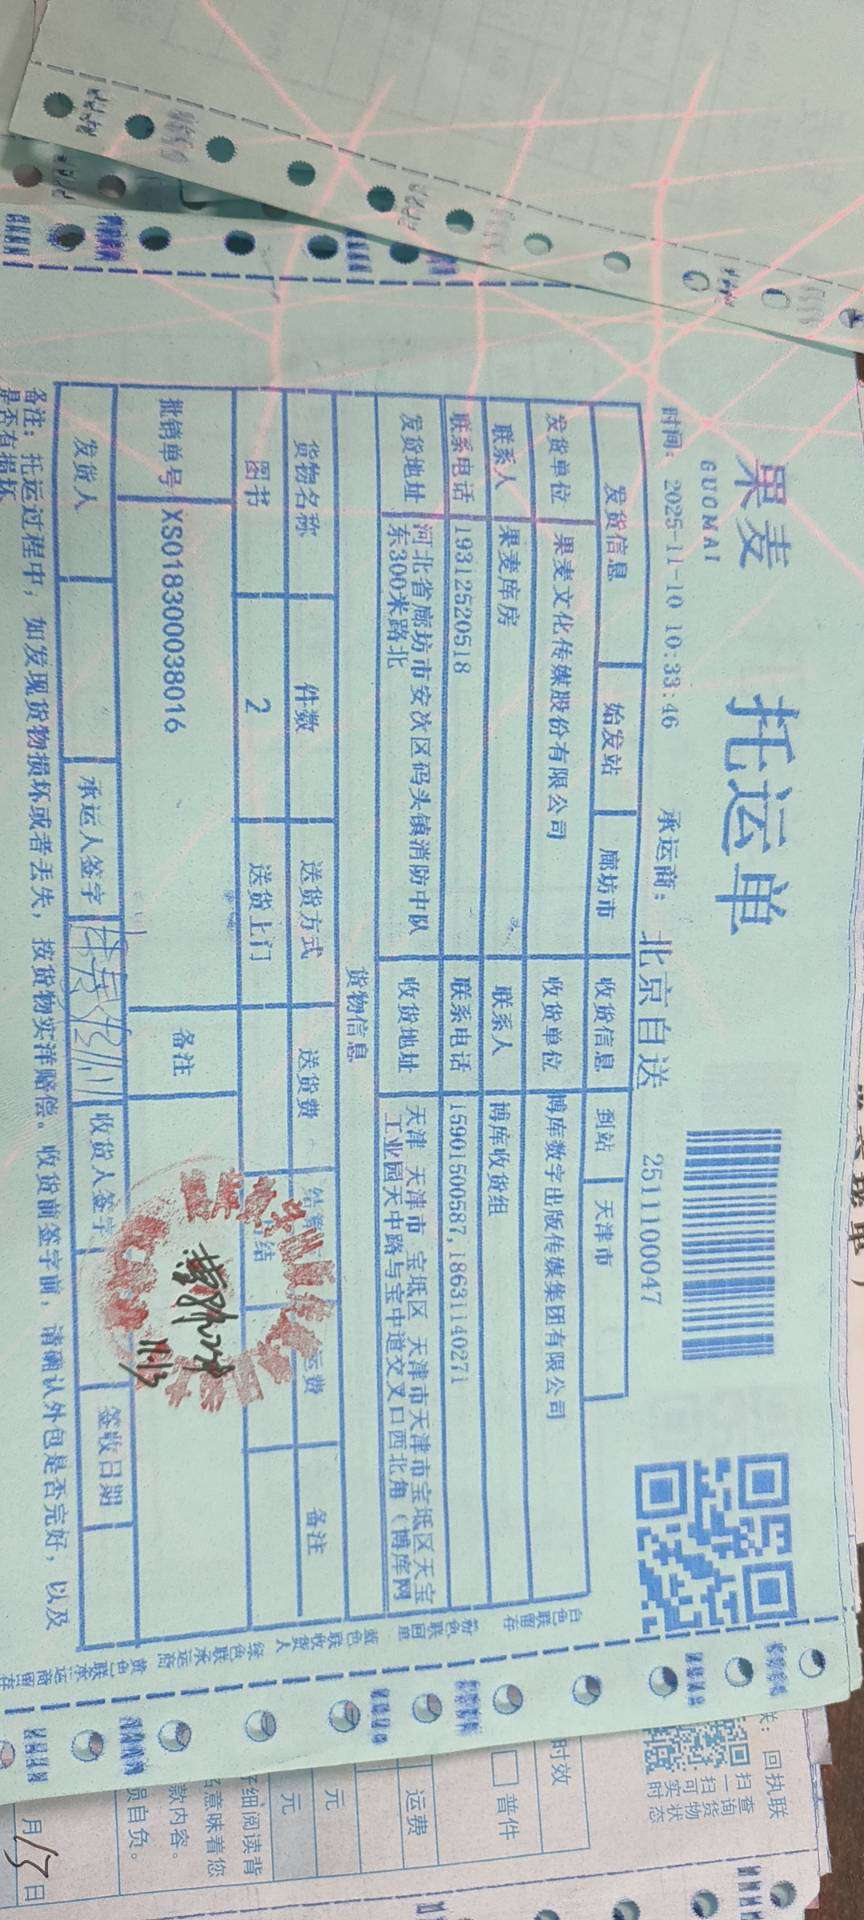 果麦 托运单
GUOMAI
时间: 2025-11-10 10:33:46 承运商: 北京自送 2511100047
发货信息 始发站 廊坊市 收货信息 到站 天津市
发货单位 果麦文化传媒股份有限公司 收货单位 博库数字出版传媒集团有限公司
联系人 果麦库房 联系人 博库收货组
联系电话 19312520518 联系电话 15901500587,18631140271
发货地址 河北省廊坊市安次区码头镇消防中队 收货地址 天津 天津市 宝坻区 天津市天津市宝坻区天宝
东300米路北 工业园天中路与宝中道交叉口西北角(博库网
货物信息
货物名称 件数 送货方式 送货费 运费 备注
图书 2 送货上门
批销单号 XS018300038016 备注
发货人 承运人签字 收货人签字 签收日期
备注: 托运过程中, 如发现货物损坏或者丢失, 按货物实洋赔偿。收货前签字前, 请确认外包是否完好, 以及
是否有损坏
白色联留存
粉色联回单
蓝色联收货人
绿色联承运商
黄色联承运商留存
回执联
扫一扫可
查询货物状态
时效
普件
运费
元
元
仔细阅读背
意味着您
款内容。
员自负。
月13日